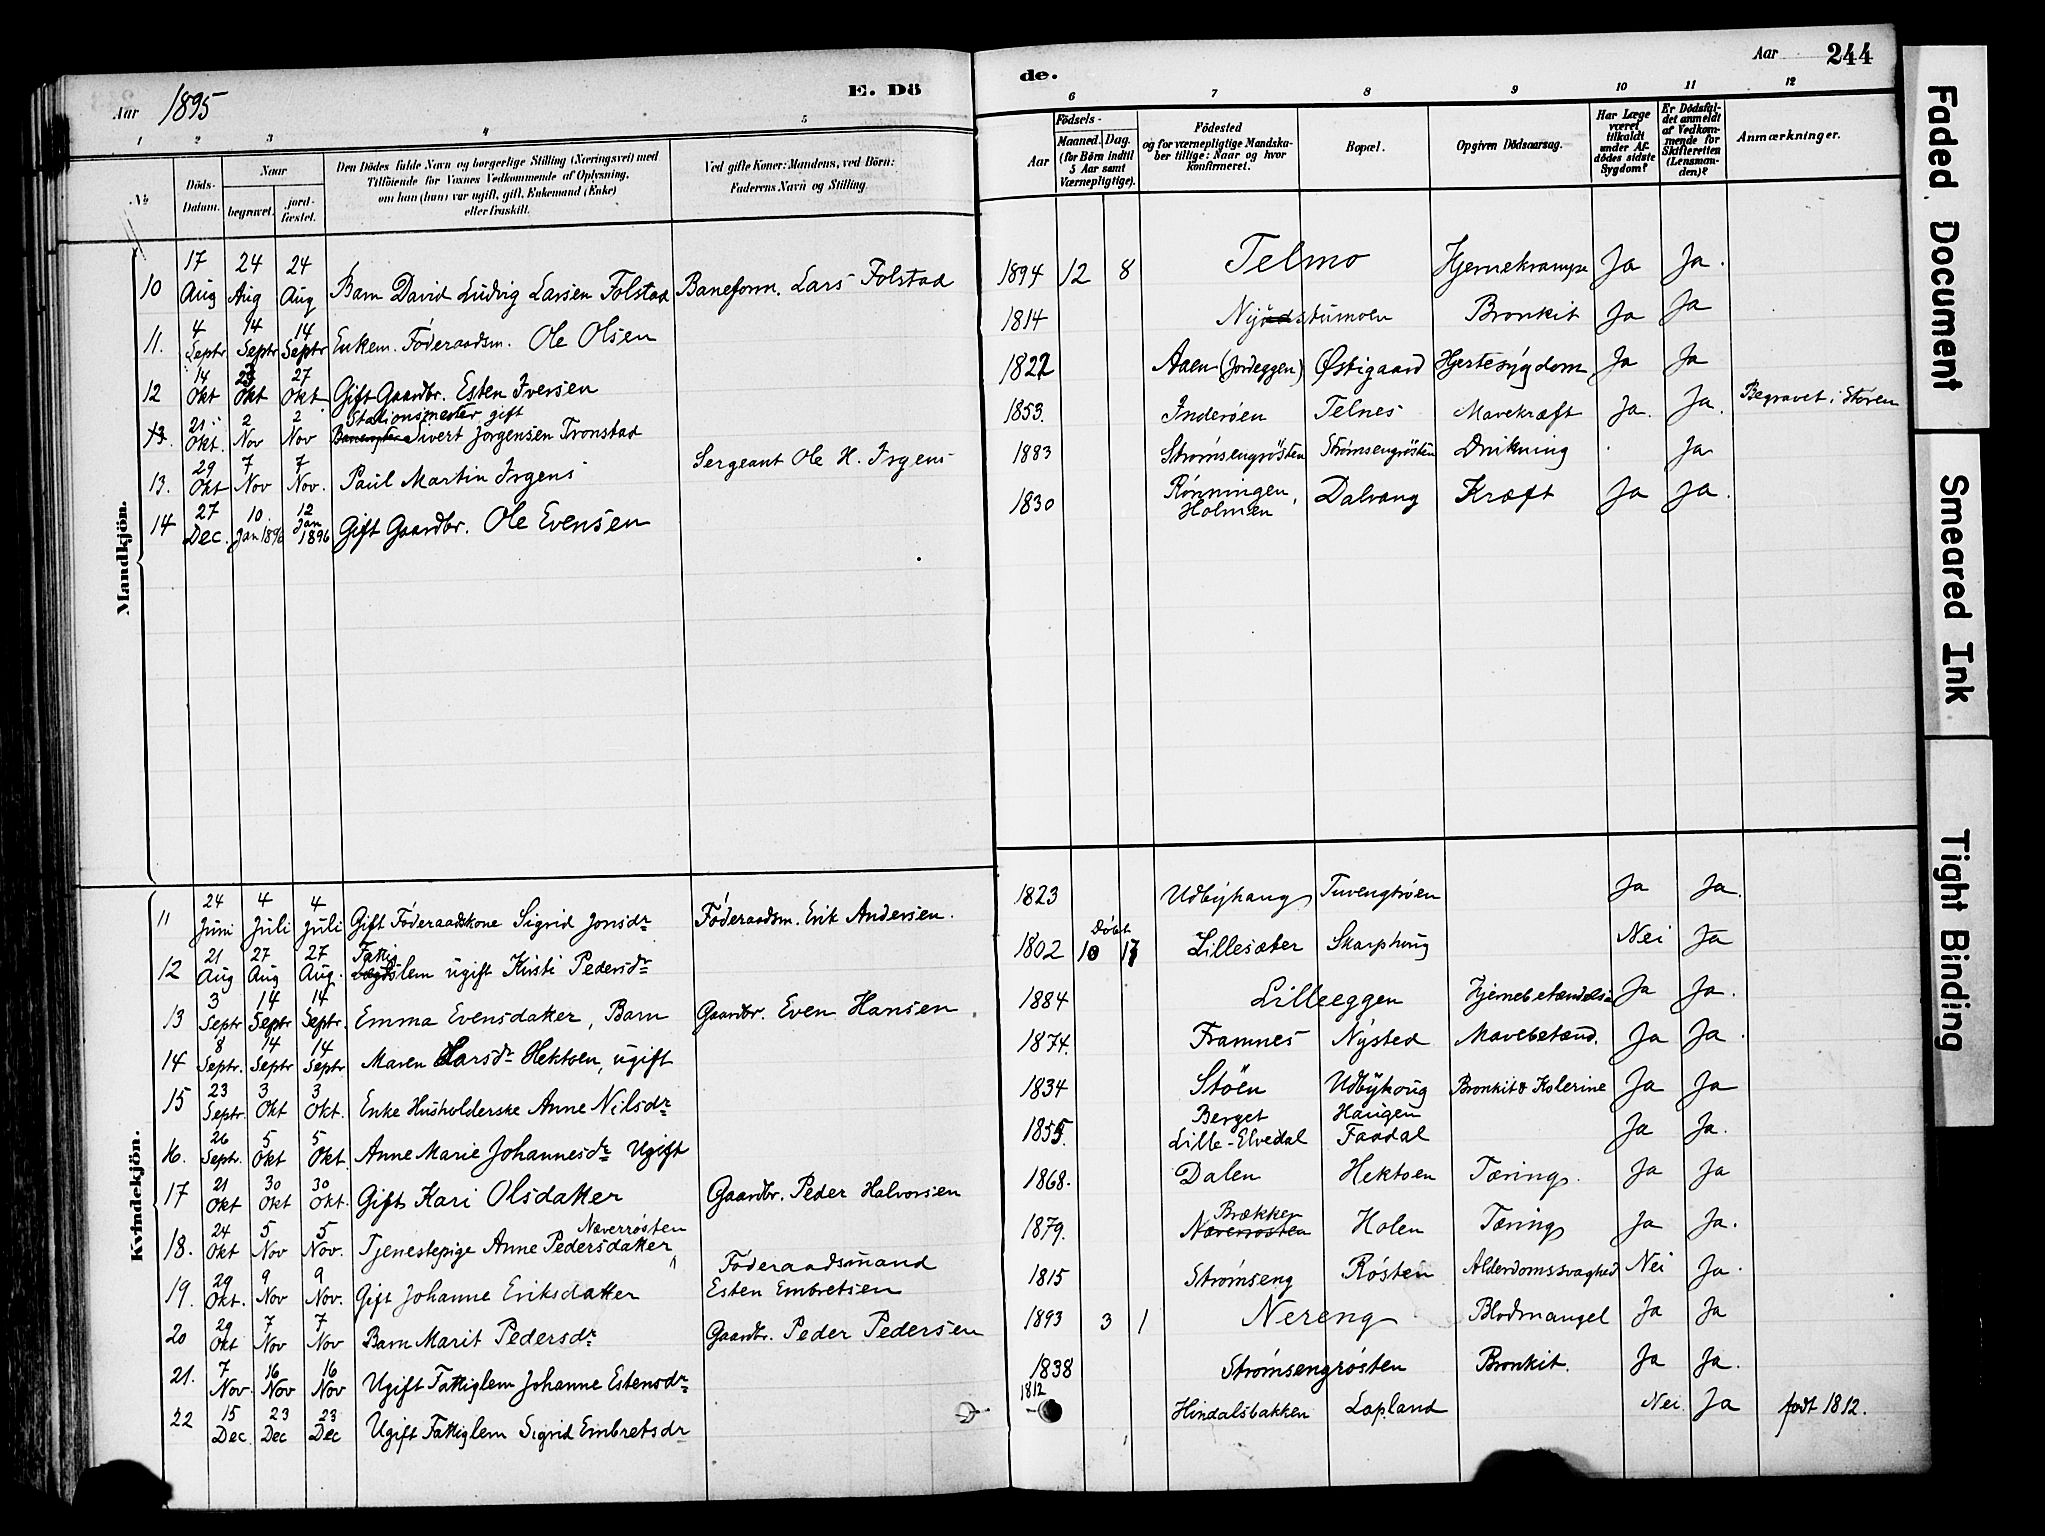 Aar 1895
E. Dö
de.
Aar 244
1 2 3 4 5 6 7 8 9 10 11 12
No
Döds-
Datum.
Naar
begravet.
jord-
fæstet.
Den Dödes fulde Navn og borgerlige Stilling (Næringsvei) med
Tilföiende for Voxnes Vedkommende af Oplysning,
om han (hun) var ugift, gift, Enkemand (Enke)
eller fraskilt.
Ved gifte Koner: Mandens, ved Börn:
Faderens Navn og Stilling.
Aar
Födsels-
Maaned. Dag.
(for Börn indtil
5 Aar samt
Værnepligtige).
Födested
og for værnepligtige Mandska-
ber tillige: Naar og hvor
konfirmeret.
Bopæl.
Opgiven Dödsaarsag.
Har Læge
været
tilkaldt
under Af-
dödes sidste
Sygdom?
Er Dödsfal-
det anmeldt
af Vedkom-
mende for
Skifteretten
(Lensman-
den)?
Anmærkninger.
Mandkjön.
10 17 Aug 24 Aug 24 Aug Barn David Ludvig Larsen Folstad Baneform. Lars Folstad 1894 12 8 Telmo Hjernekrampe Ja Ja.
11. 4 Septr 14 Septr 14 Septr Enkem. Föderaadsm. Ole Olsen 1814 Nijödstumoen Bronkit Ja Ja
12 14 Okt Okt 27 Okt Gift Gaardbr. Esten Iversen 1822 Aaen (Jordeggen) Østigaard Hjertesygdom Ja Ja
Stationsmester gift
13. 21 Okt. 2 Nov 2 Nov Sivert Jørgensen Tronstad 1853. Inderøen Telnes Mavekræft Ja. Ja. Begravet i Støren
13. 29 Okt 7 Nov 7 Nov. Paul Martin Irgens Sergeant Ole H. Irgens 1883 Strømsengrøsten Strømsengrøsten Drukning Ja
14 27 Dec. 10. Jan 1896 12 Jan 1896 Gift Gaardbr. Ole Evensen 1830 Rønningen, Holmen Dalvang Kræft Ja Ja.
Kvindekjön.
11 24 Juni 4 Juli 4 Juli Gift Föderaadskone Sigrid Jonsdr Föderaadsm. Erik Andersen. 1823 Udbyhaug Tuvengtrøen Ja Ja.
12 21 Aug 27 Aug 27 Aug. Fattig lægdslem ugift Kirsti Pedersdr 1802 Döbt 10 17 Lillesæter Skarphoug Nei Ja
13 3 Septr 14 Septr 14 Septr. Emma Evensdatter, Barn Gaardbr. Even Hansen 1884 Lilleeggen Hjernebetændelse Ja Ja.
14 8 Septr. 14 Septr 14 Septr Maren Larsdr Hektoen, ugift 1874. Framnes Nysted Mavebetænd. Ja Ja.
15 23 Septr. 3 Okt 3 Okt. Enke Husholderske Anne Nilsdr 1834 Støen Udbyhoug Bronkit & Kolerine Ja Ja
16. 26 Septr. 5 Okt 5 Okt. Anne Marie Johannesdr Ugift 1855. Berget Lille-Elvedal Haugen Faadal Ja Ja.
17 21 Okt 30 Okt 30 Okt. Gift Kari Olsdatter Gaardbr. Peder Halvorsen 1868. Dalen Hektoen Tæring. Ja Ja
Næverrøsten
18. 24 Okt 5 Nov 5 Nov. Tjenestepige Anne Pedersdatter 1879. Brækken Næverrøsten Holen Tæring Ja Ja.
19. 29 Okt. 9 Nov 9 Nov. Gift Johanne Eriksdatter Föderaadsmand Esten Embretsen 1815 Strømseng Røsten Alderdomssvaghed Nei Ja.
20 29 Okt 7 Nov 7 Nov Barn Marit Pedersdr Gaardbr. Peder Pedersen 1893 3 1 Nereng Blodmangel Ja Ja
21. 7 Nov. 16 Nov 16 Nov Ugift Fattiglem Johanne Estensdr 1838 Strømsengrøsten Bronkit. Ja Ja.
22 15 Dec. 23 Dec 23 Dec Ugift Fattiglem Sigrid Embretsdr 1812 Hindalsbakken Lapland Nei. Ja født 1812.
Faded Document
Smeared Ink
Tight Binding